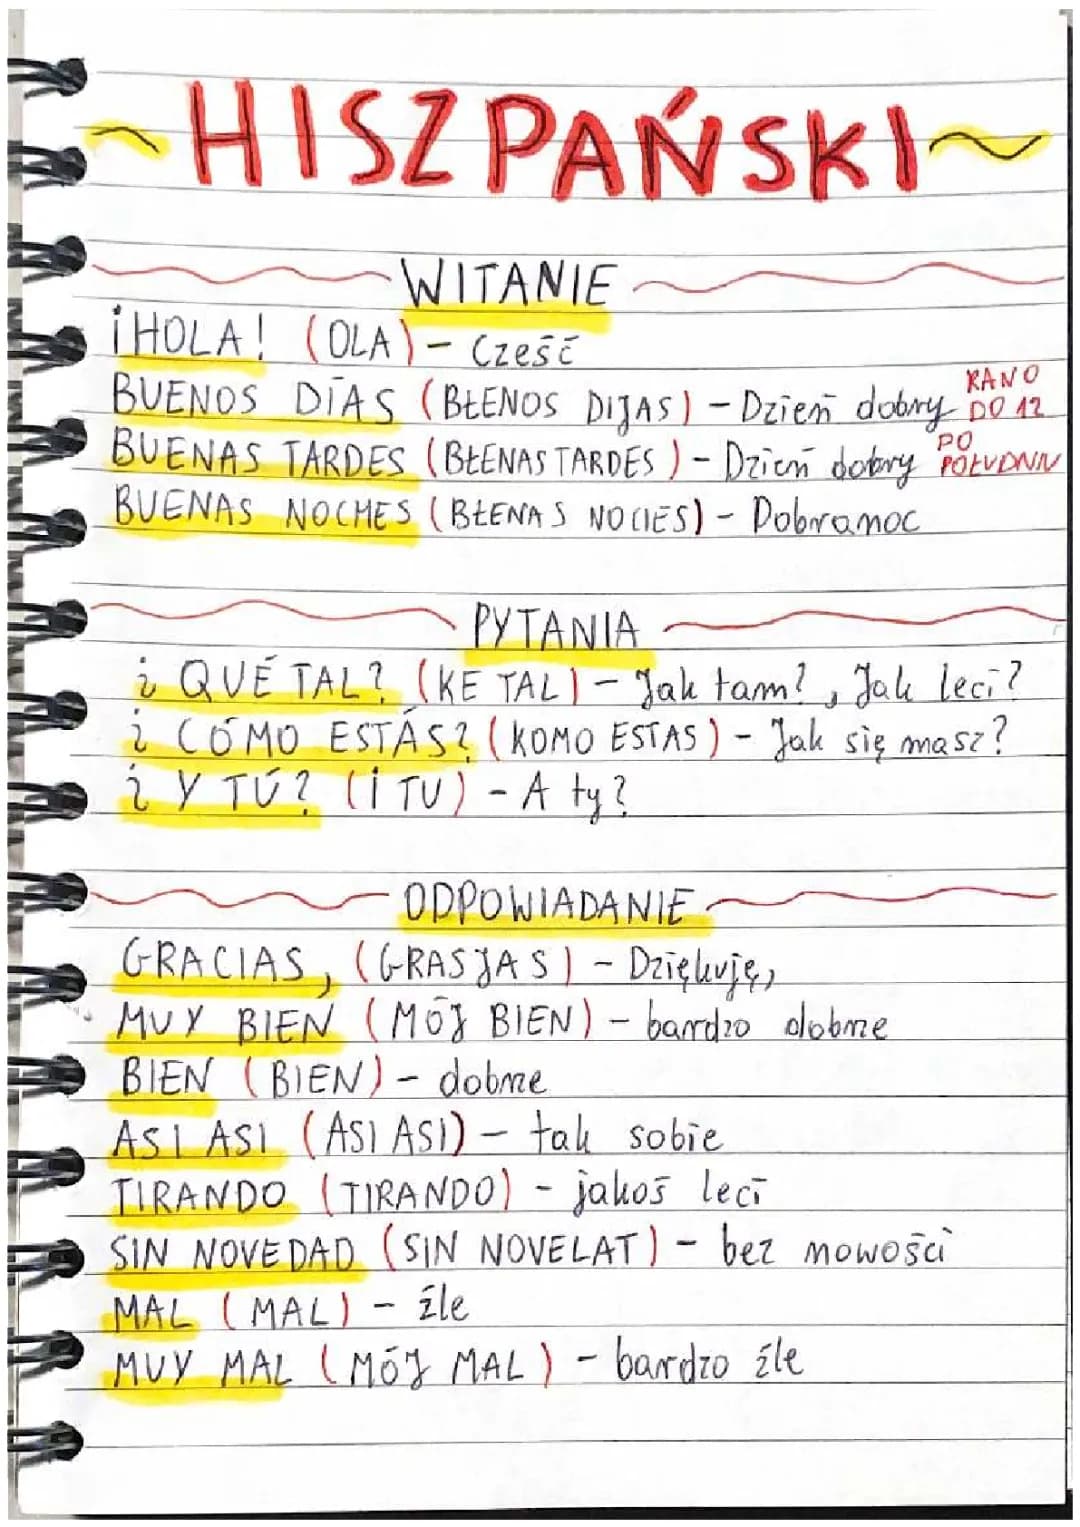 ~ HISZPAŃSKI ~
WITANIE
¡HOLA! (OLA) - Cześć
BUENOS DÍAS (BŁENOS DIJAS) - Dzień dobry RANO DO 12
BUENAS TARDES (BŁENAS TARDES) - Dzień dobry PO POŁUDNIU
BUENAS NOCHES (BŁENAS NOCIES) - Dobranoc
PYTANIA
¿QUÉ TAL? (KE TAL) - Jak tam?, Jak leci?
¿CÓMO ESTÁS? (KOMO ESTAS) - Jak się masz?
¿Y TÚ? (I TU) - A ty?
ODPOWIADANIE
GRACIAS, (GRASJAS) - Dziękuję,
MUY BIEN (MÓJ BIEN) - bardzo dobrze
BIEN (BIEN) - dobrze
ASI ASI (ASI ASI) - tak sobie
TIRANDO (TIRANDO) - jakoś leci
SIN NOVEDAD (SIN NOVELAT) - bez nowości
MAL (MAL) - źle
MUY MAL (MÓJ MAL) - bardzo źle